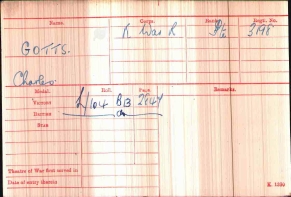 Name. Corps. Rank. Regtl. No.
R War R Pte 3198
GOTTS.
Charles.
Medal. Roll. Page. Remarks.
Victory H/104 B13 2647
British do
Star
Theatre of War first served in
Date of entry therein
K. 1380